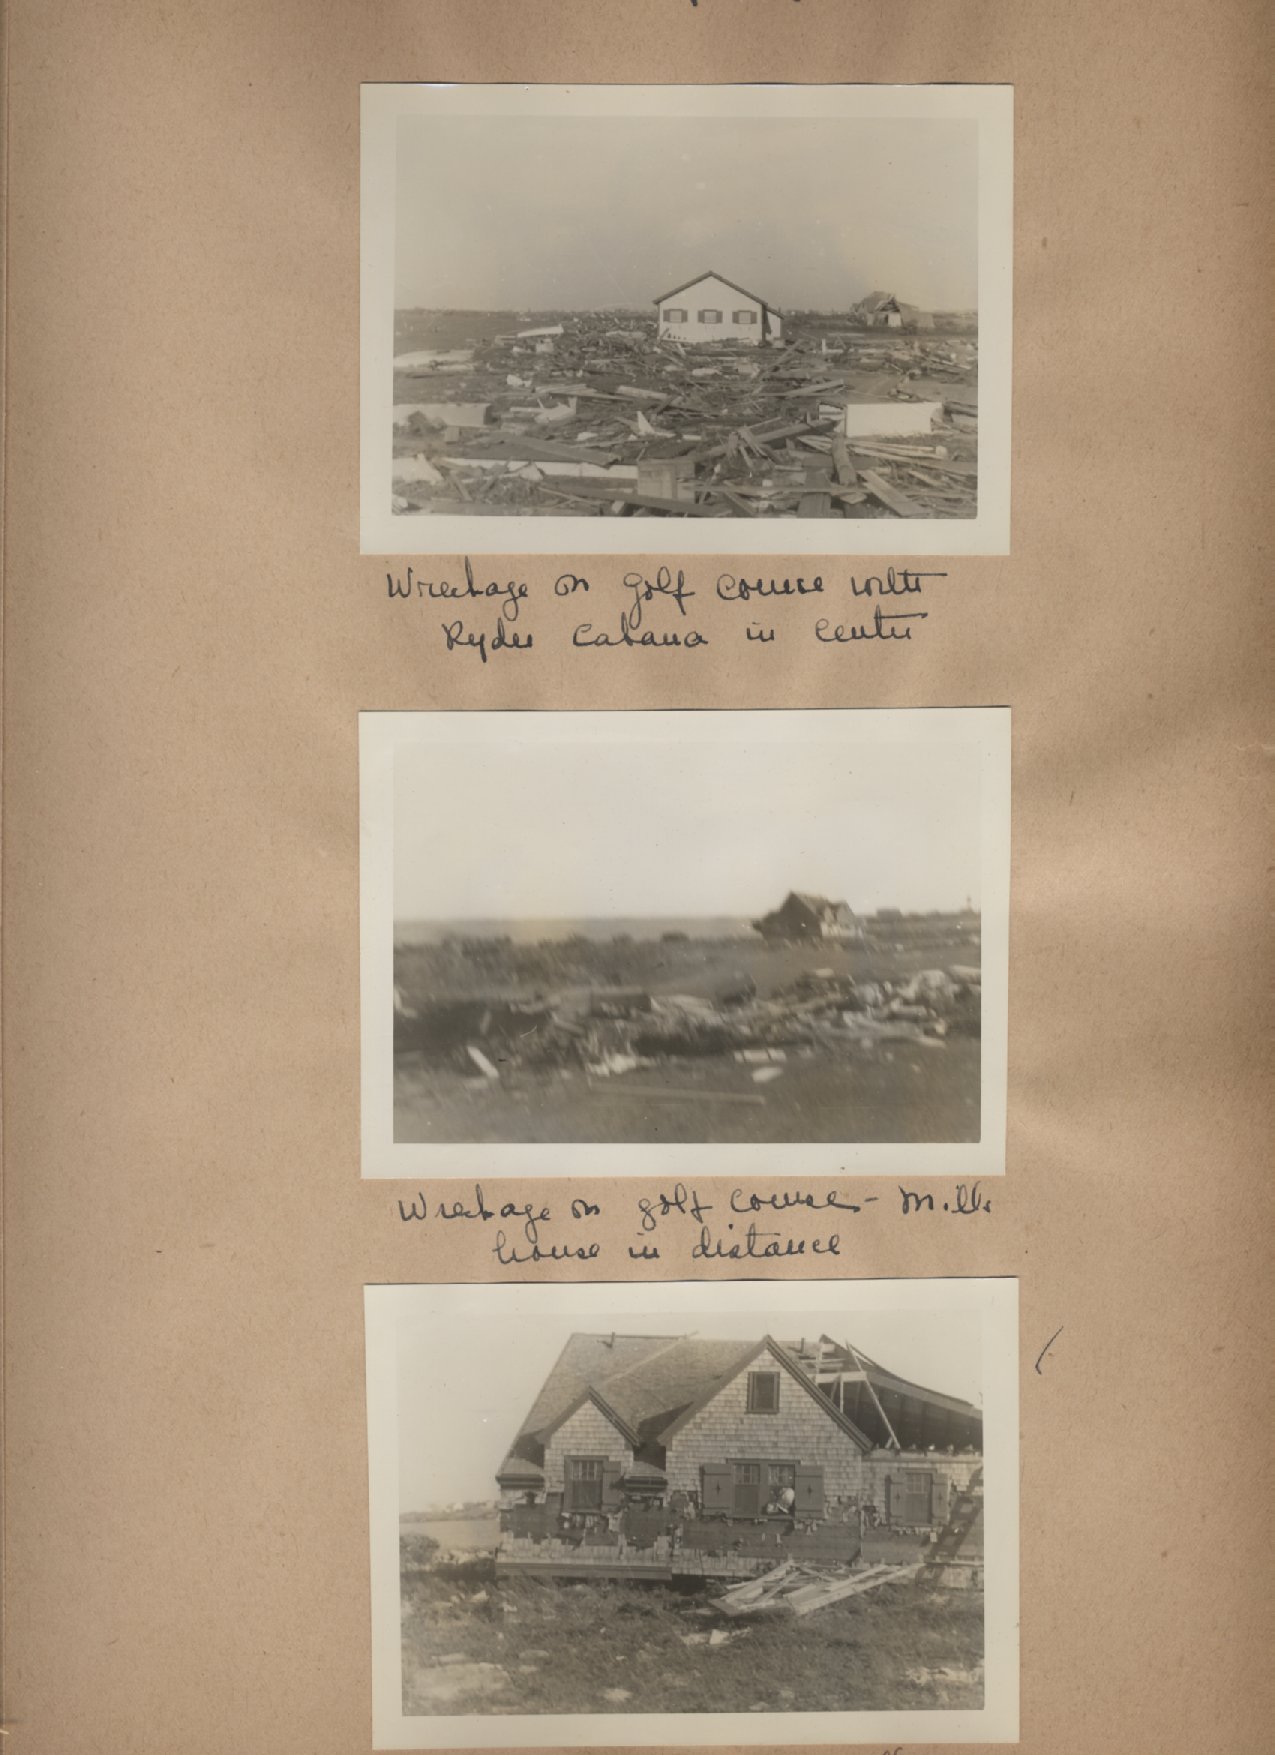 Wreckage on golf course with
Ryder Cabana in center
Wreckage on golf course - Mills
house in distance